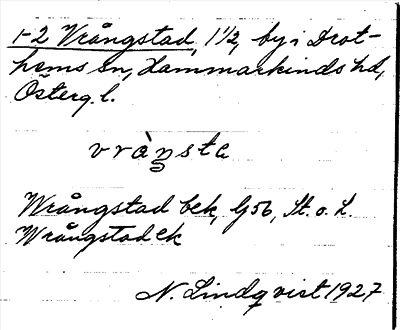 1-2 Vrångstad, 1 1/2, by i Drot-
hems sn, Hammarkinds hd,
Österg. l.
vràŋsta
Wrångstad bek, G56, St. o. L.
Wrångstad ek
N. Lindqvist 1927